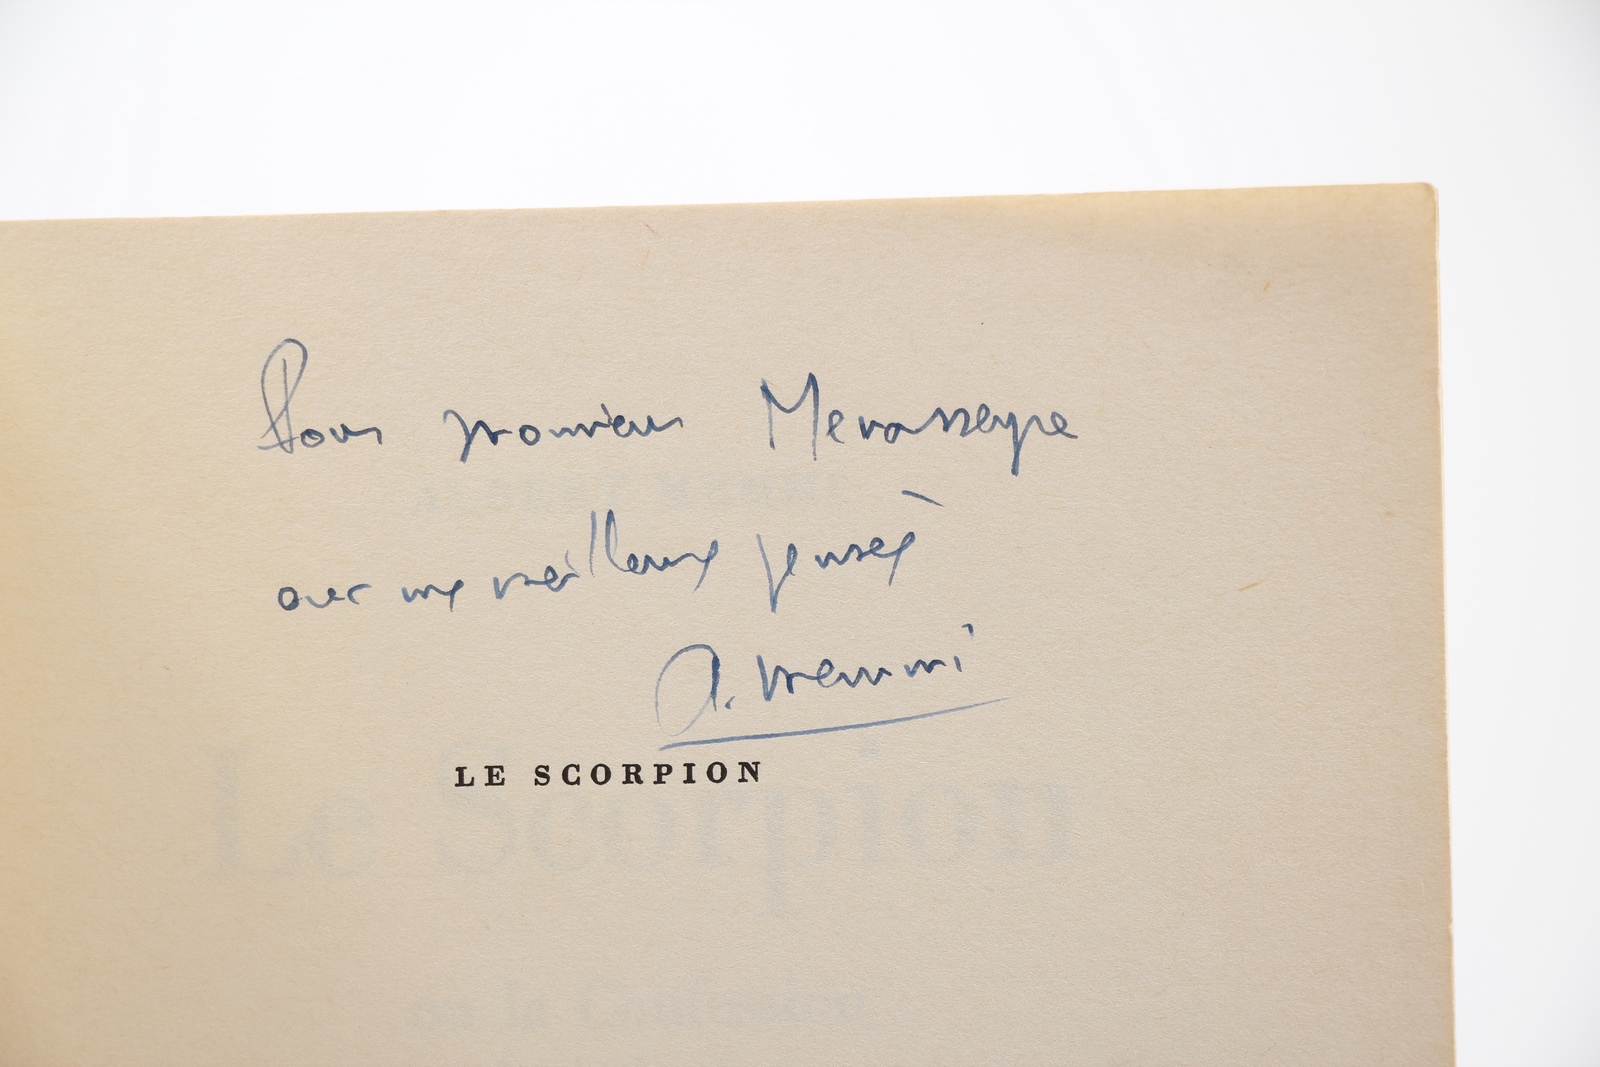 Pour monsieur
avec mes meilleures pensées
A. Memmi
LE SCORPION
Le Scorpion